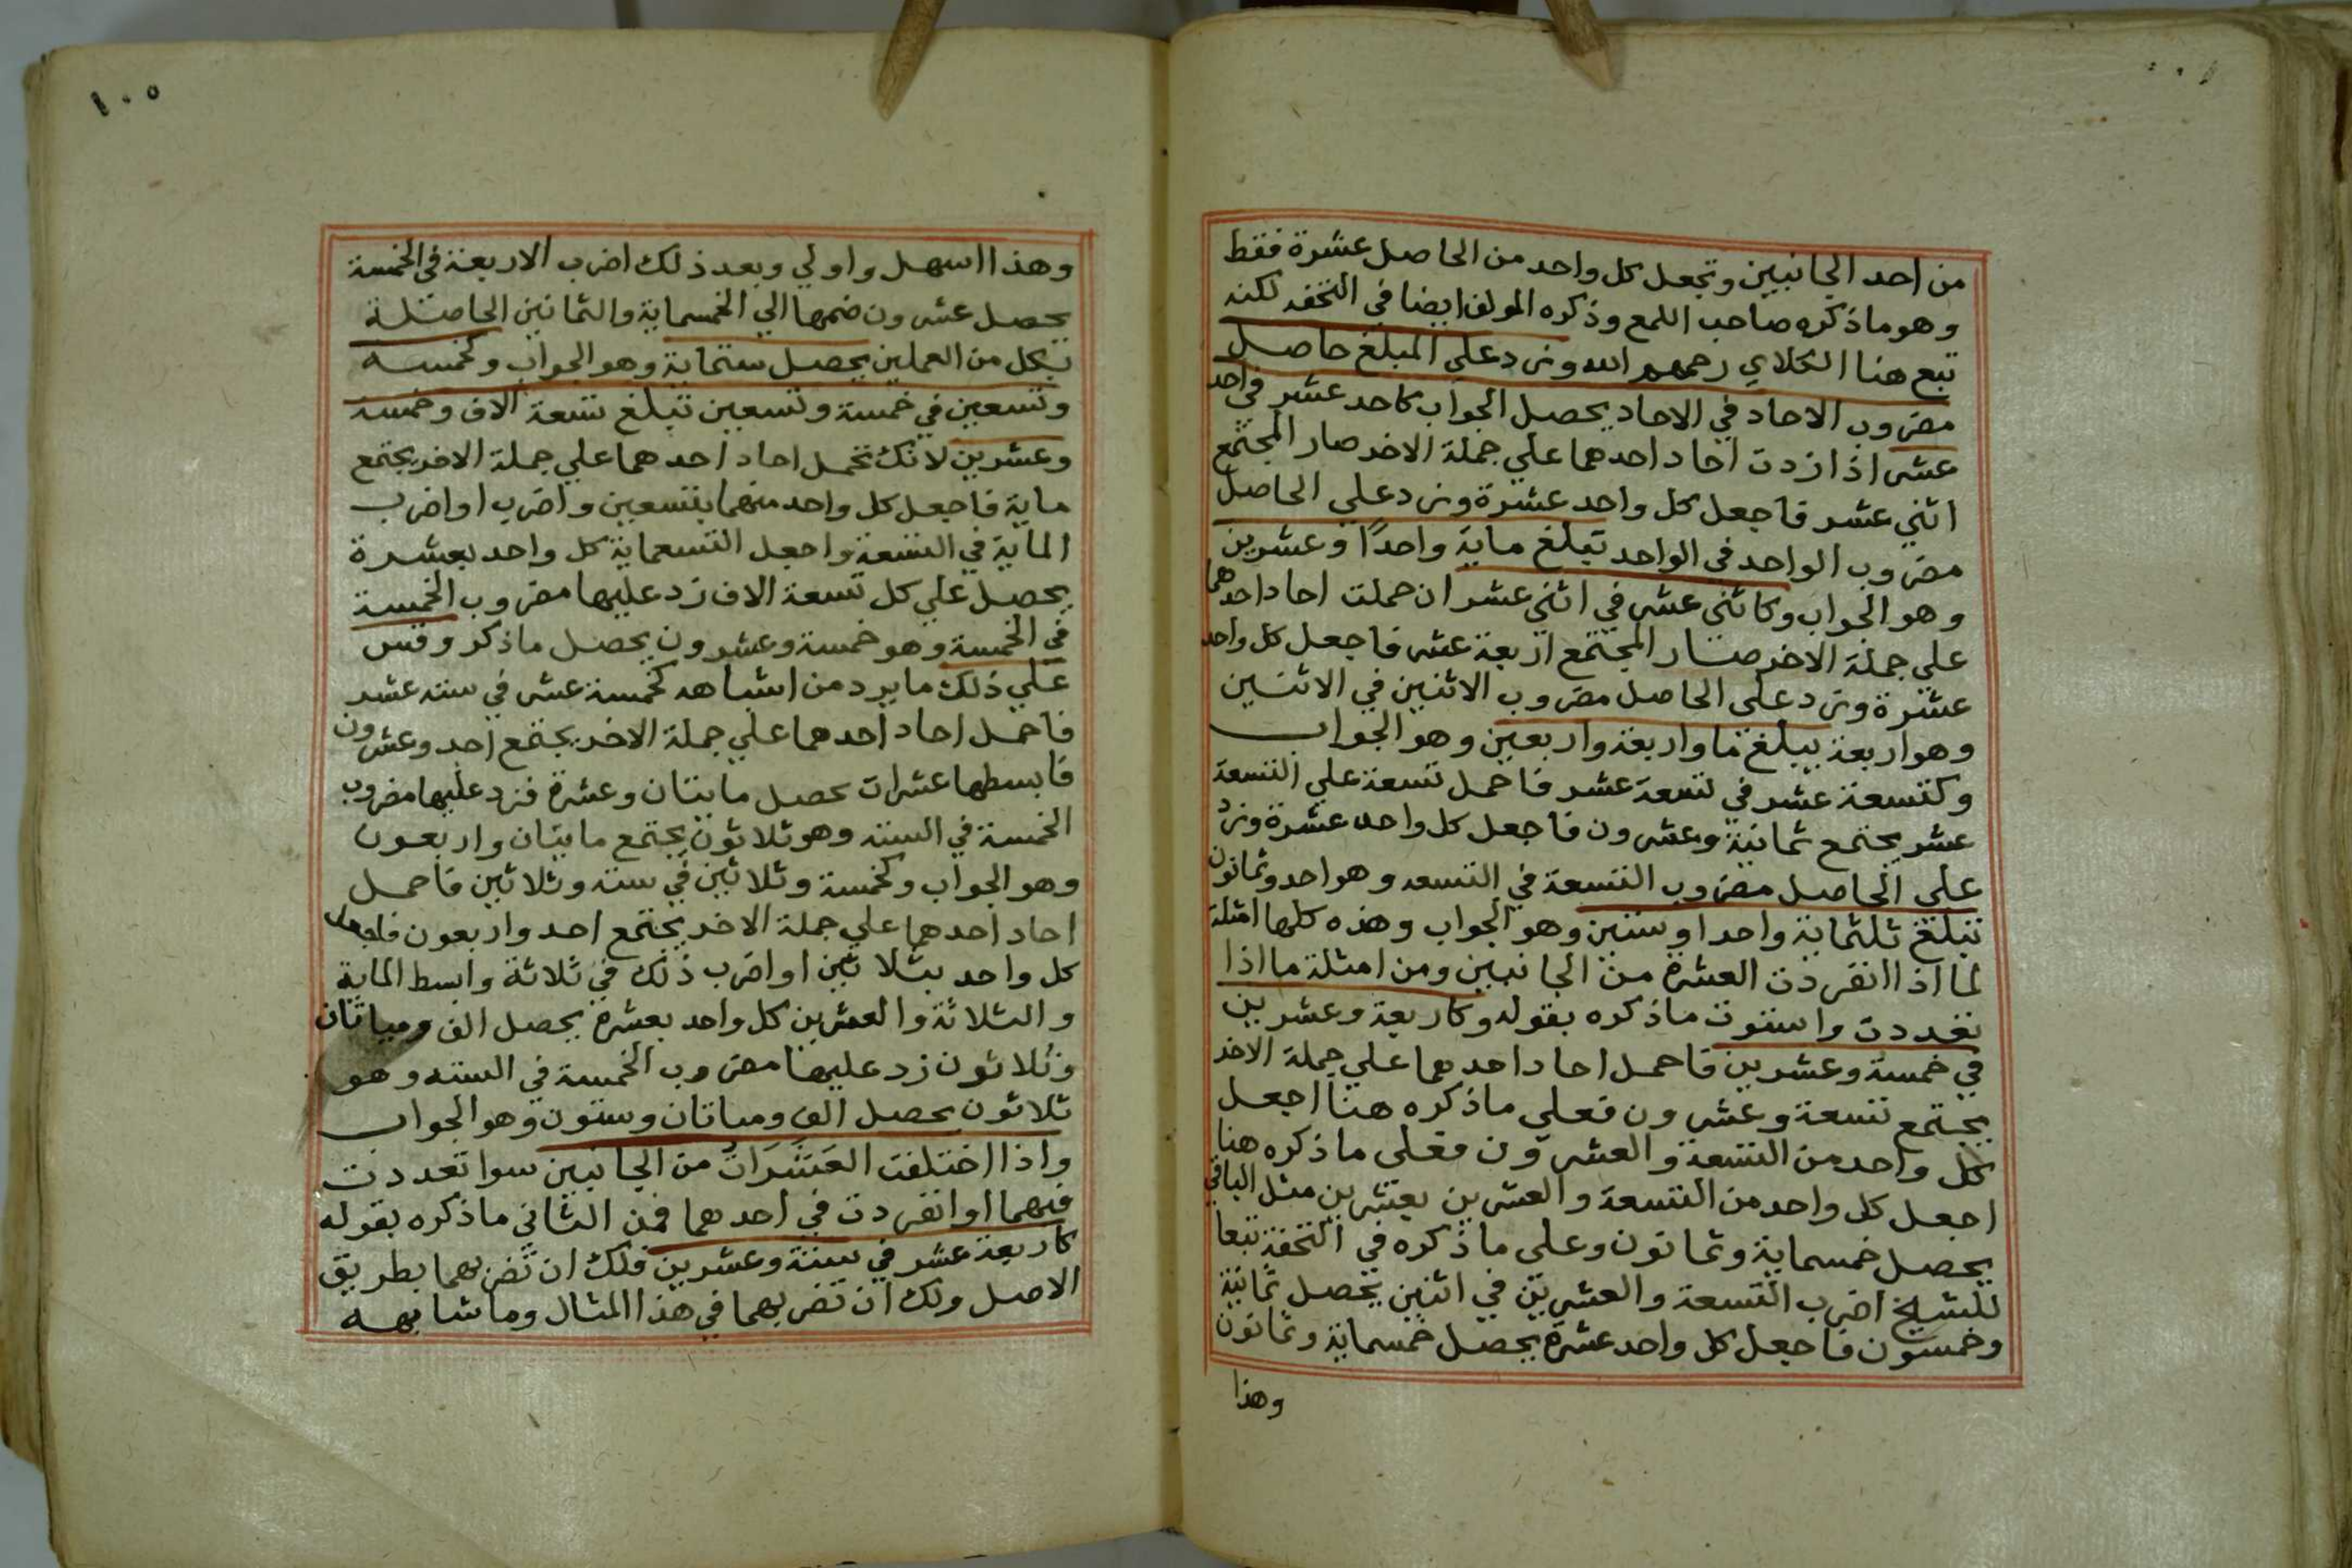 من احد الجانبين وتجعل كل واحد من الحاصل عشرة فقط
وهو ما ذكره صاحب اللمع وذكره المولف ايضا في التحفه لكنه
تبع هنا الكلاي رحمهم الله وزد علي المبلغ حاصل
مضروب الاحاد في الاحاد يحصل الجواب كاحد عشر في احد
عشر اذا زدت احاد احدهما علي جملة الاخر صار المجتمع
اثني عشر فاجعل كل واحد عشرة وزد علي الحاصل
مضروب الواحد في الواحد تبلغ ماية واحدًا وعشرين
وهو الجواب وكاثني عشر في اثني عشر ان حملت احاد احدهما
علي جملة الاخر صار المجتمع اربعة عشر فاجعل كل واحد
عشرة وزد علي الحاصل مضروب الاثنين في الاثنين
وهو اربعة يبلغ ما واربعة واربعين وهو الجواب
وكتسعة عشر في تسعة عشر فاحمل تسعة علي التسعة
عشر يجتمع ثمانية وعشرون فاجعل كل واحد عشرة وزد
علي الحاصل مضروب التسعة في التسعه وهو احد وثمانون
تبلغ ثلثماية واحدا وستين وهو الجواب وهذه كلها امثلة
لما اذا انفردت العشرة من الجانبين ومن امثلة ما اذا
تعددت واستوت ماذكره بقوله وكاربعة وعشرين
في خمسة وعشرين فاحمل احاد احدهما علي جملة الاخر
يجتمع تسعة وعشرون فعلي ماذكره هنا اجعل
كل واحد من التسعة والعشرون فعلي ماذكره هنا
اجعل كل واحد من التسعة والعشرين بعشرين مثل الباقي
يحصل خمسماية وثمانون وعلي ماذكره في التحفة تبعا
للشيخ اضرب التسعة والعشرين في اثنين يحصل ثمانية
وخمسون فاجعل كل واحد عشرة يحصل خمسماية وثمانون
وهذا
١٠٥
وهذا اسهل واولي وبعد ذلك اضرب الاربعة في الخمسة
يحصل عشرون ضمها الي الخمسماية والثمانين الحاصلة
بكل من العملين يحصل ستماية وهو الجواب وكخمسه
وتسعين في خمسة وتسعين تبلغ تسعة الاف وخمسة
وعشرين لانك تحمل احاد احدهما علي جملة الاخر يجتمع
ماية فاجعل كل واحد منهما بتسعين واضرب او اضرب
الماية في التسعة واجعل التسعماية كل واحد بعشرة
يحصل علي كل تسعة الاف زد عليها مضروب الخمسة
في الخمسة وهو خمسة وعشرون يحصل ماذكر وقس
علي ذلك ما يرد من اشباهه كخمسة عشر في سته عشر
فاحمل احاد احدهما علي جملة الاخر يجتمع احد وعشرون
فابسطها عشرات يحصل مايتان وعشرة فزد عليها مضروب
الخمسة في السته وهو ثلاثون يجتمع مايتان واربعون
وهو الجواب وكخمسة وثلاثين في سته وثلاثين فاحمل
احاد احدهما علي جملة الاخر يجتمع احد واربعون فاجعل
كل واحد بثلاثين او اضرب ذلك في ثلاثة وابسط الماية
والثلاثة والعشرين كل واحد بعشرة يحصل الف ومياتان
وثلاثون زد عليها مضروب الخمسة في السته وهو
ثلاثون يحصل الف ومياتان وستون وهو الجواب
واذا اختلفت العَشَرَاتُ من الجانبين سوا تعددت
فيهما او انفردت في احدهما فمن الثاني ماذكره بقوله
كاربعة عشر في ستة وعشرين فلك ان تضربهما بطريق
الاصل ولك ان تضربهما في هذا المثال وما شابهه